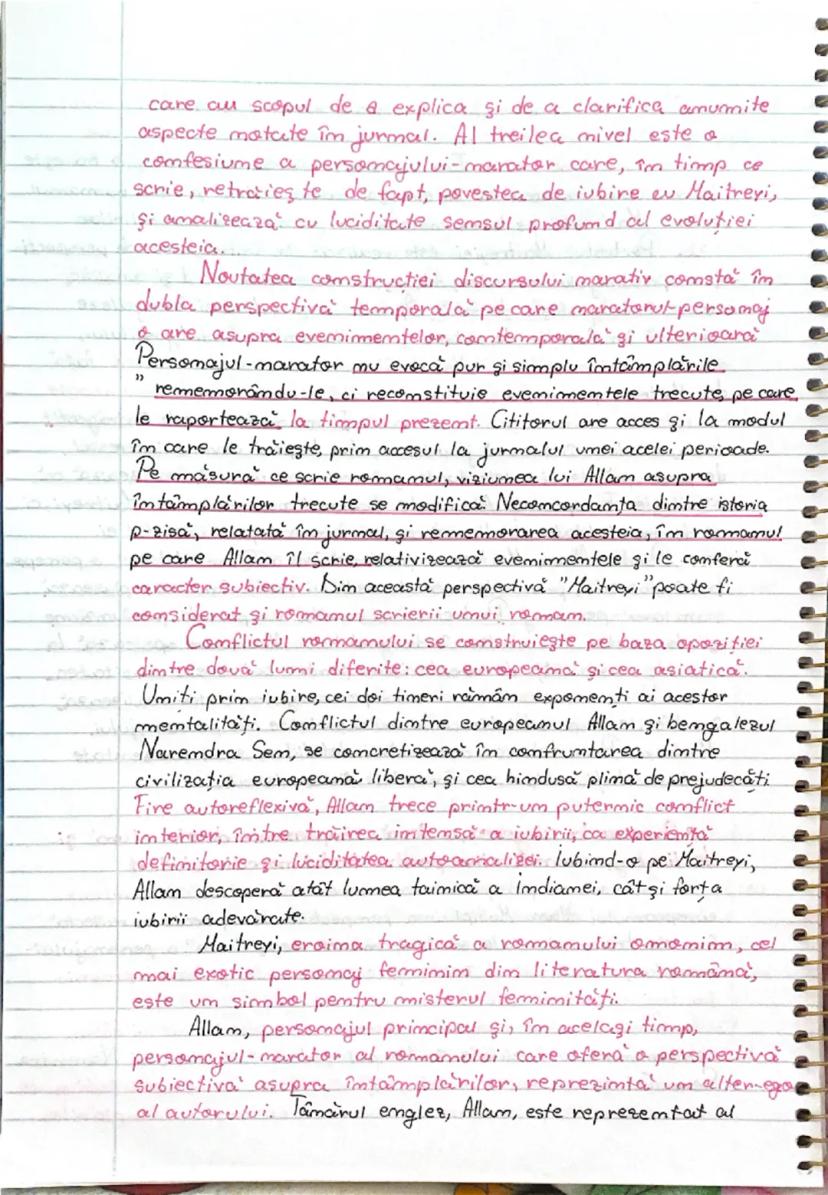 care au scopul de a explica și de a clarifica anumite
aspecte notate în jurnal. Al treilea nivel este o
confesiune a personajului-narator care, în timp ce
scrie, retrăiește de fapt, povestea de iubire cu Maitreyi,
și analizează cu luciditate sensul profund al evoluției
acesteia.
Noutatea construcției discursului narativ constă în
dubla perspectivă temporală pe care naratorul-personaj
o are asupra evenimentelor, contemporală și ulterioară
Personajul-narator nu evocă pur și simplu întâmplările
" rememorându-le, ci reconstituie evenimentele trecute, pe care
le raportează la timpul prezent. Cititorul are acces și la modul
în care le trăiește, prin accesul la jurnalul unei acelei perioade.
Pe măsură ce scrie romanul, viziunea lui Allan asupra
întâmplărilor trecute se modifică. Neconcordanța dintre istoria
p-zisă, relatată în jurnal, și rememorarea acesteia, în romanul
pe care Allan îl scrie, relativizează evenimentele și le conferă
caracter subiectiv. Din această perspectivă "Maitreyi" poate fi
considerat și romanul scrierii unui roman.
Conflictul romanului se construiește pe baza opoziției
dintre două lumi diferite: cea europeană și cea asiatică.
Uniti prin iubire, cei doi tineri rămân exponenți ai acestor
mentalități. Conflictul dintre europeanul Allan și bengalezul
Narendra Sen, se concretizează în confruntarea dintre
civilizația europeană liberă, și cea hindusă plină de prejudecăți.
Fire autoreflexivă, Allan trece printr-un puternic conflict
interior, între trăirea intensă a iubirii, ca experiență
definitorie și luciditatea autoanalizei. Iubind-o pe Maitreyi,
Allan descoperă atât lumea tainică a Indianei, cât și forța
iubirii adevărate.
Maitreyi, eroina tragică a romanului omonim, cel
mai exotic personaj feminin din literatura română,
este un simbol pentru misterul feminității.
Allan, personajul principal și, în același timp,
personajul-narator al romanului care oferă o perspectivă
subiectivă asupra întâmplărilor, reprezintă un alter-ego
al autorului. Tânărul englez, Allan, este reprezentat al